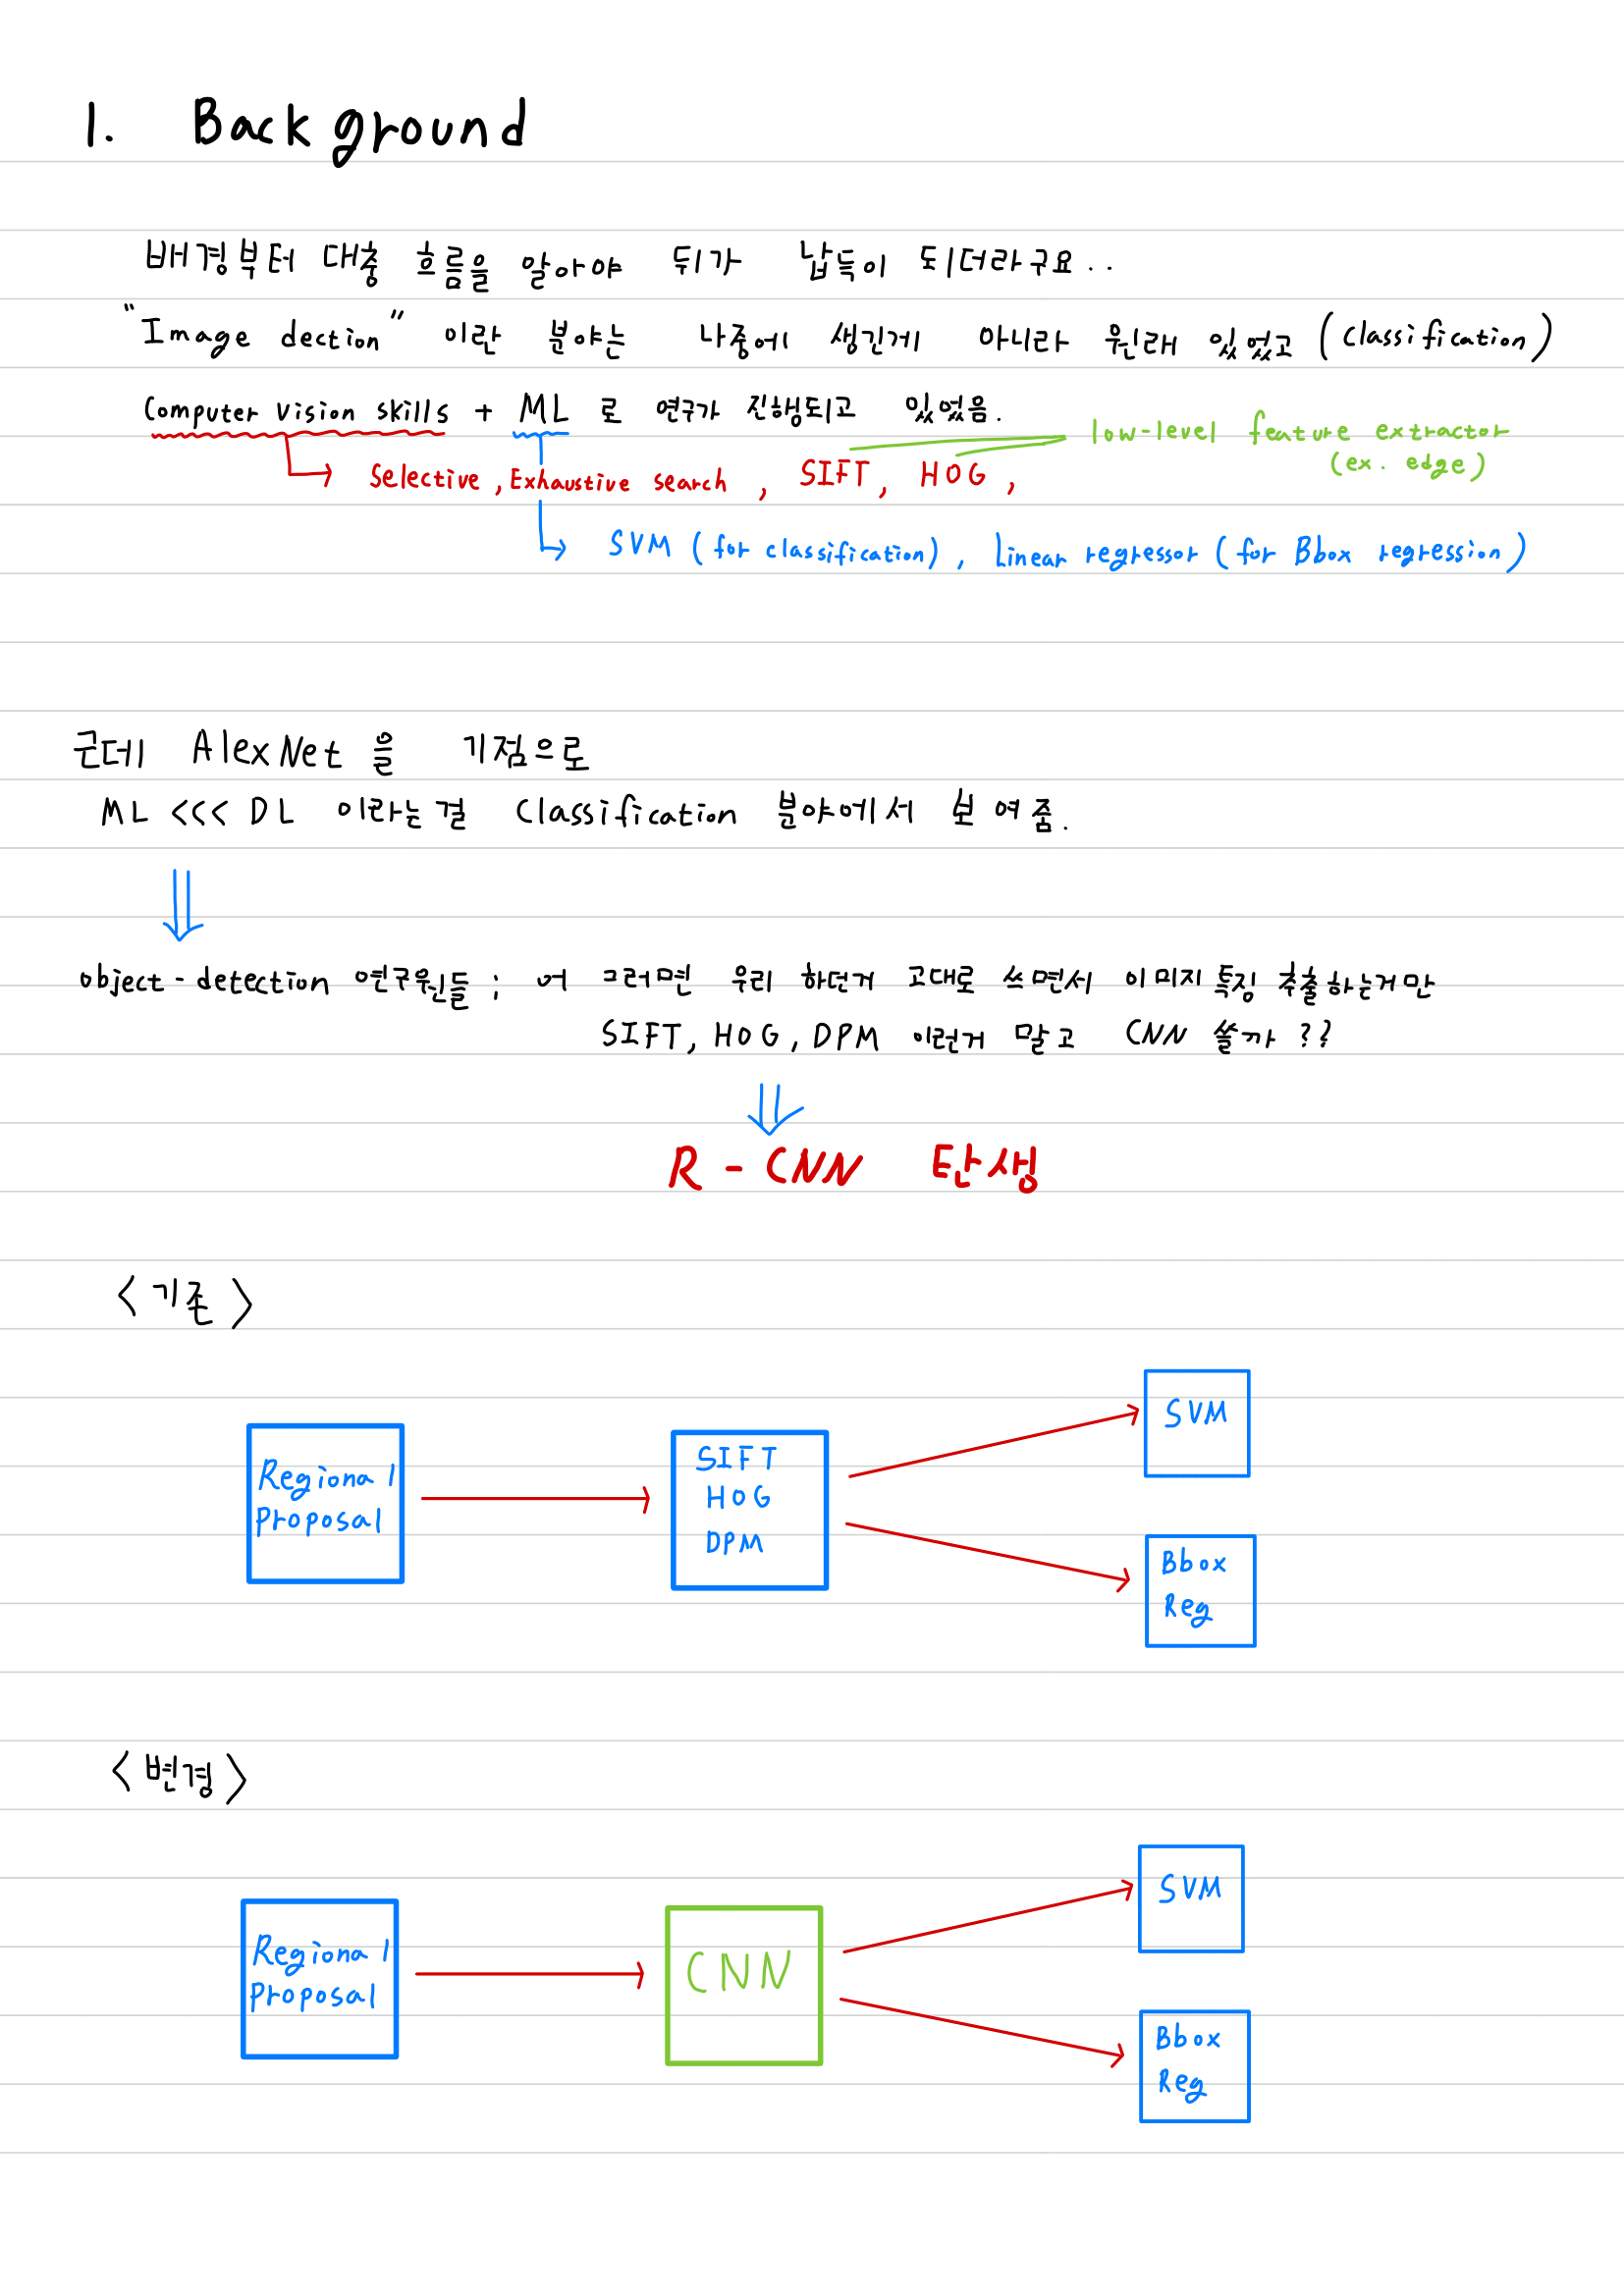 1. Background
배경부터 대충 흐름을 알아야 뒤가 납득이 되더라구요..
"Image dection" 이란 분야는 나중에 생긴게 아니라 원래 있었고 (classification)
Computer vision skills + ML 로 연구가 진행되고 있었음.
low-level feature extractor
(ex. edge)
Selective, Exhaustive search, SIFT, HOG,
SVM (for classification), Linear regressor (for Bbox regression)
근데 AlexNet 을 기점으로
ML <<< DL 이라는걸 Classification 분야에서 보여줌.
object-detection 연구원들 ; 어 그러면 우리 하던거 고대로 쓰면서 이미지 특징 추출하는거만
SIFT, HOG, DPM 이런거 말고 CNN 쓸까 ??
R-CNN 탄생
<기존>
Regional
Proposal
SIFT
HOG
DPM
SVM
Bbox
Reg
<변경>
Regional
Proposal
CNN
SVM
Bbox
Reg